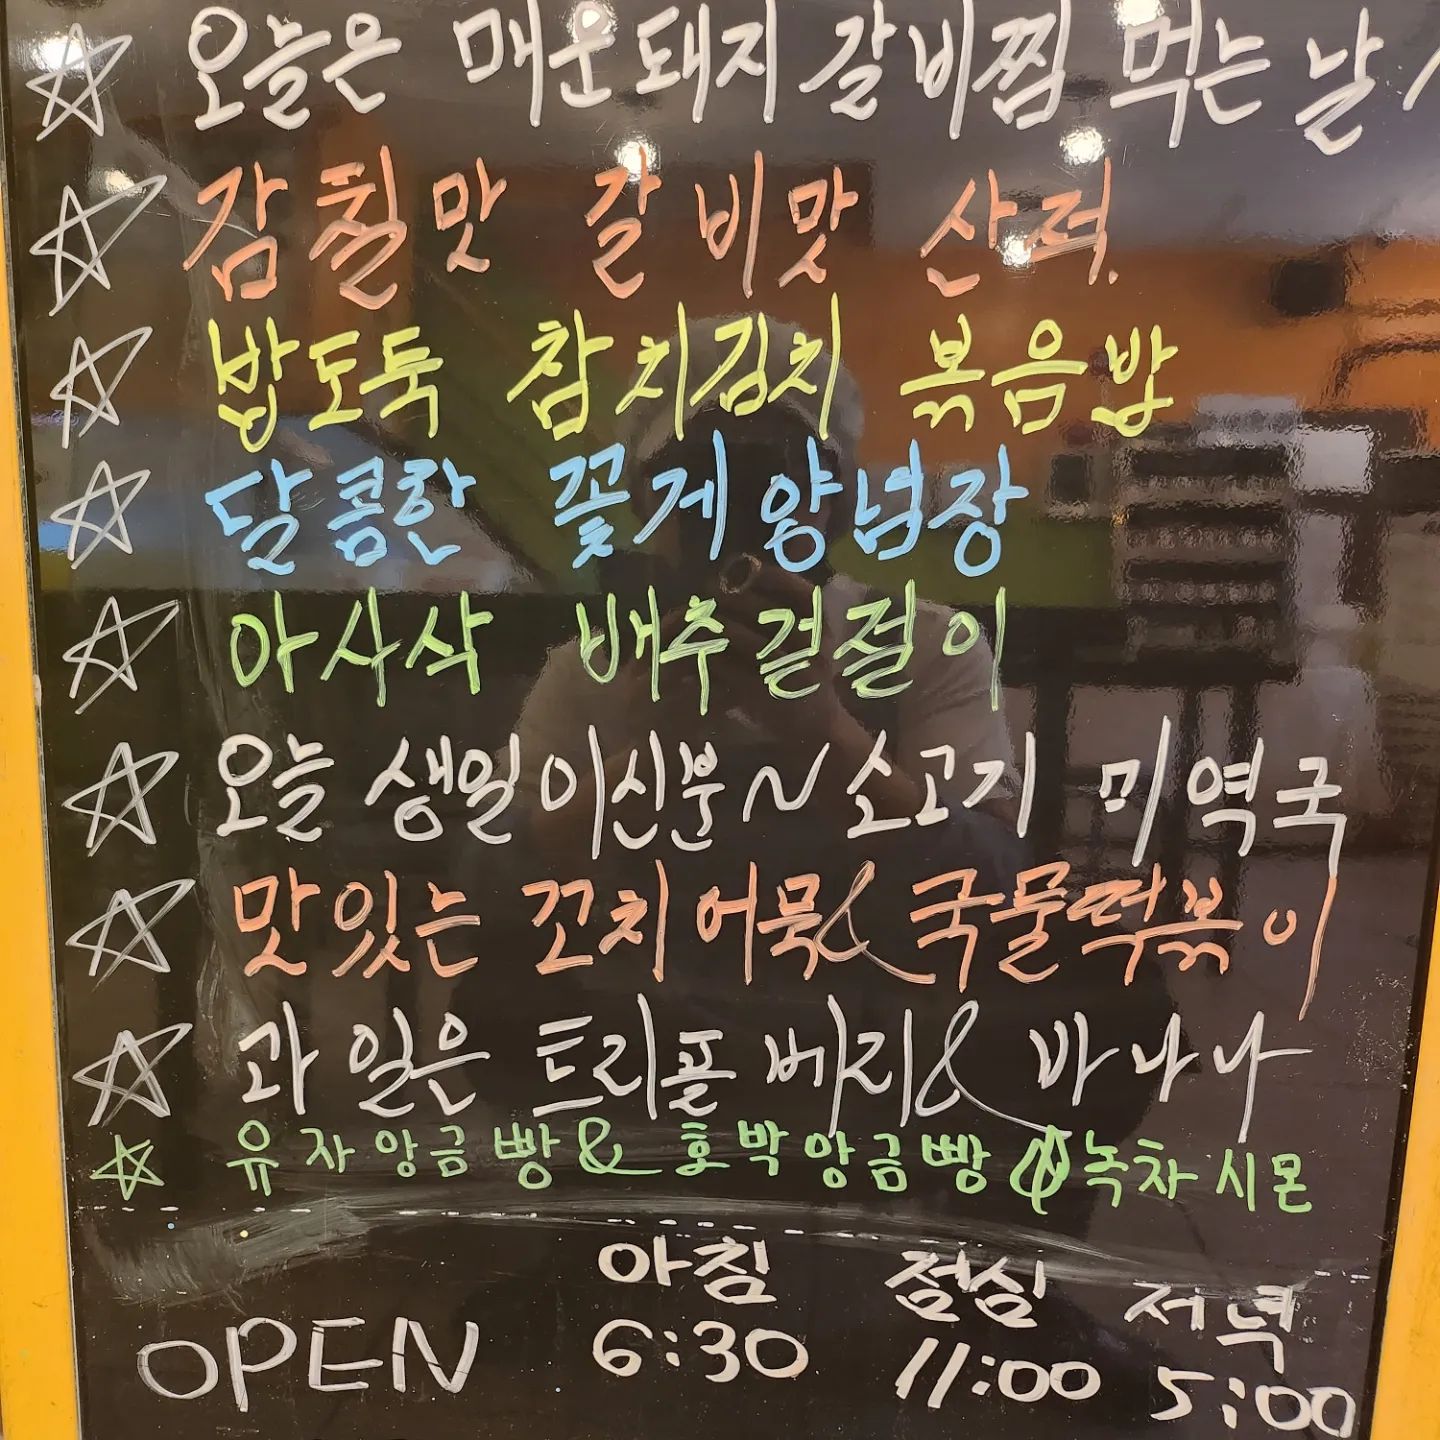 ☆ 오늘은 매운돼지 갈비찜 먹는 날
☆ 감칠맛 갈비맛 산적.
☆ 밥도둑 참치김치 볶음밥
☆ 달콤한 꽃게양념장
☆ 아사삭 배추겉절이
☆ 오늘 생일이신분~소고기 미역국
☆ 맛있는 꼬치어묵& 국물떡볶이
☆ 과일은 트리플 베리& 바나나
☆ 유자앙금빵& 호박앙금빵 녹차시몬
아침 점심 저녁
OPEN 6:30 11:00 5:00